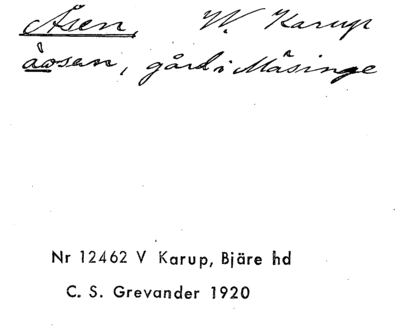 Åsen, W. Karup
åosen, gård i Måsinge
Nr 12462 V Karup, Bjäre hd
C. S. Grevander 1920